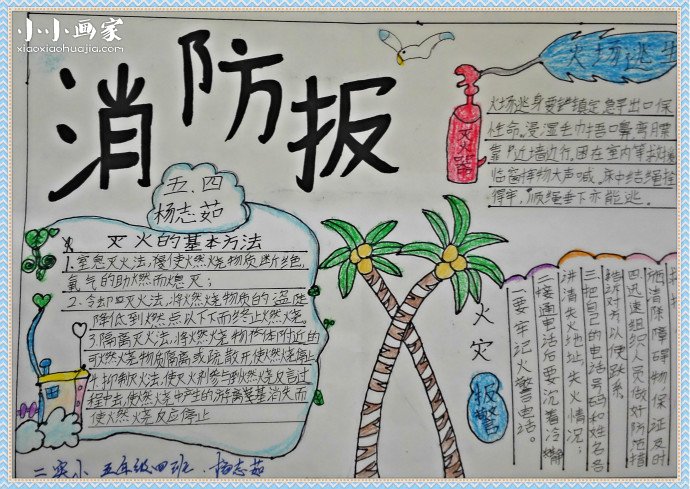 小小画家
xiaoxiaohuajia.com
消防报
五.四
杨志茹
灭火的基本方法
1.窒息灭火法,慢使燃烧物质断绝
氧气的助燃而熄灭;
2.冷却灭火法,将燃烧物质的温度
降低到燃点以下而终止燃烧。
3.隔离灭火法,将燃烧物体附近的
可燃烧物质隔离或疏散开使燃烧停止
4.抑制灭火法,使灭火剂参与到燃烧反言过
程中去,使燃烧中产生的游离基消失而
使燃烧反应停止
二实小 五年级四班.杨志茹
火场逃生
灭火器
火场逃身要镇定急寻出口保
性命。浸湿毛巾捂口鼻弯月
靠近墙边行。困在室内等求
临窗挥物大声喊。床中结绳
得牢,顺绳垂下亦能逃。
火灾
报警
一要牢记火警电话。
二接通电话后要沉着冷静
讲清失火地址,失火情况;
三把自己的电话号码和姓名告
诉对方以便联系
四迅速组织人员做好防范措
施消除障碍物保证及时